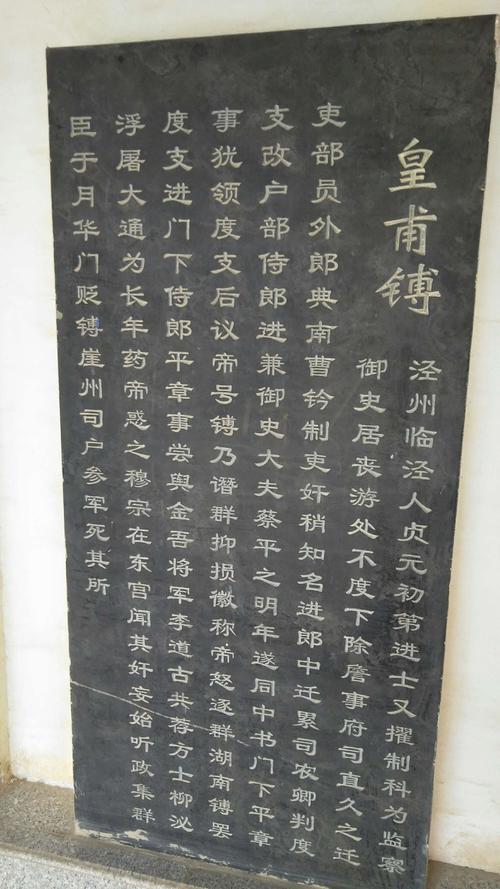 皇甫镈
泾州临泾人贞元初第进士又擢制科为监察
御史居丧游处不度下除詹事府司直久之迁
吏部员外郎典南曹钤制吏奸稍知名进郎中迁累司农卿判度
支改户部侍郎进兼御史大夫蔡平之明年遂同中书门下平章
事犹领度支后议帝号镈乃谮群抑损徽称帝怒逐群湖南镈罢
度支进门下侍郎平章事尝舆金吾将军李道古共荐方士柳泌
浮屠大通为长年药帝惑之穆宗在东宫闻其奸妄始听政集群
臣于月华门贬镈崖州司户参军死其所